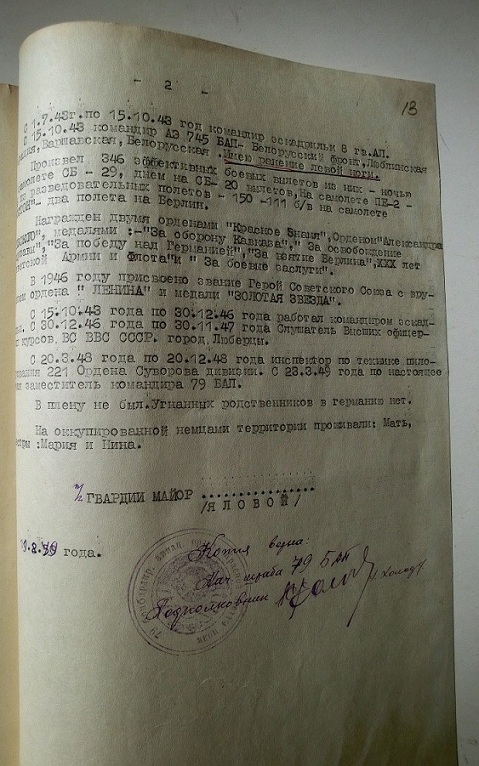 - 2 -
13
С 1.7.43г.по 15.10.43 год командир эскадрильи 8 гв.АП.
С 15.10.43 командир АЭ 745 БАП- Белорусский фронт,Люблинская
Варшавская, Белорусская .Имею ранение левой ноги.
Произвел 346 эффективных боевых вылетов из них - ночью
самолете СБ - 29, днем на СБ- 20 вылетов,На самолете ПЕ-2 -
разведовательных полетов - 150 -111 б/в на самолете
два полета на Берлин.
Награжден двумя орденами "Красное Знамя",Орденом"Александра
медалями :-"За оборону Кавказа"," За освобождение
"За победу над Германией","За взятие Берлина",XXX лет
Армии и Флота"и " За боевые заслуги".
В 1946 году присвоено звание Герой Советского Союза с вру-
ордена " ЛЕНИНА" и медали "ЗОЛОТАЯ ЗВЕЗДА".
С 15.10.43 года по 30.12.46 года работал командиром эскад-
С 30.12.46 года по 30.11.47 года Слушатель Высших офицер-
курсов. ВС ВВС СССР. город Люберцы.
С 20.3.48 года по 20.12.48 года инспектор по технике пило-
221 Ордена Суворова дивизии. С 23.3.49 года по настоящее
заместитель командира 79 БАП.
В плену не был.Угнанных родственников в германию нет.
На оккупированной немцами территории проживали: Мать,
:Мария и Нина.
п/ ГВАРДИИ МАЙОР ..............
/ЯЛОВОЙ/
года.
Копия верна:
Нач штаба 79 БАП
Подполковник